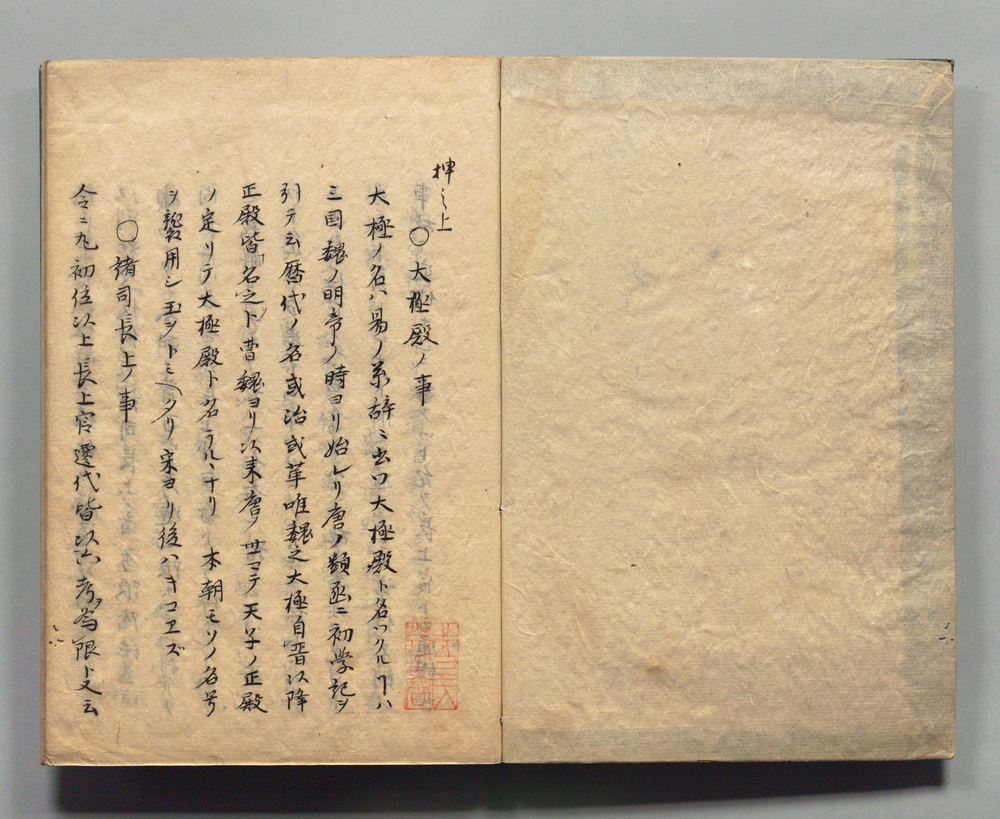 押之上
〇大極殿ノ事
大極ノ名ハ易ノ系辞ニ出ツ大極殿ト名ツクルヿハ
三国魏ノ明帝ノ時ヨリ始レリ唐ノ類函ニ初學記ヲ
引テ云暦代ノ名或治或革唯魏之大極自晋以降
正殿皆名之ト曹魏ヨリ以来唐ノ世マテ天子ノ正殿
ノ定リテ大極殿ト名ラルヽナリ 本朝モソノ名号
ヲ襲用シ玉ヲトミヘタリ宋ヨリ後ハキコヱズ
〇諸司長上ノ事
令ニ凡初位以上長上官遷代皆以六考為限ト又云